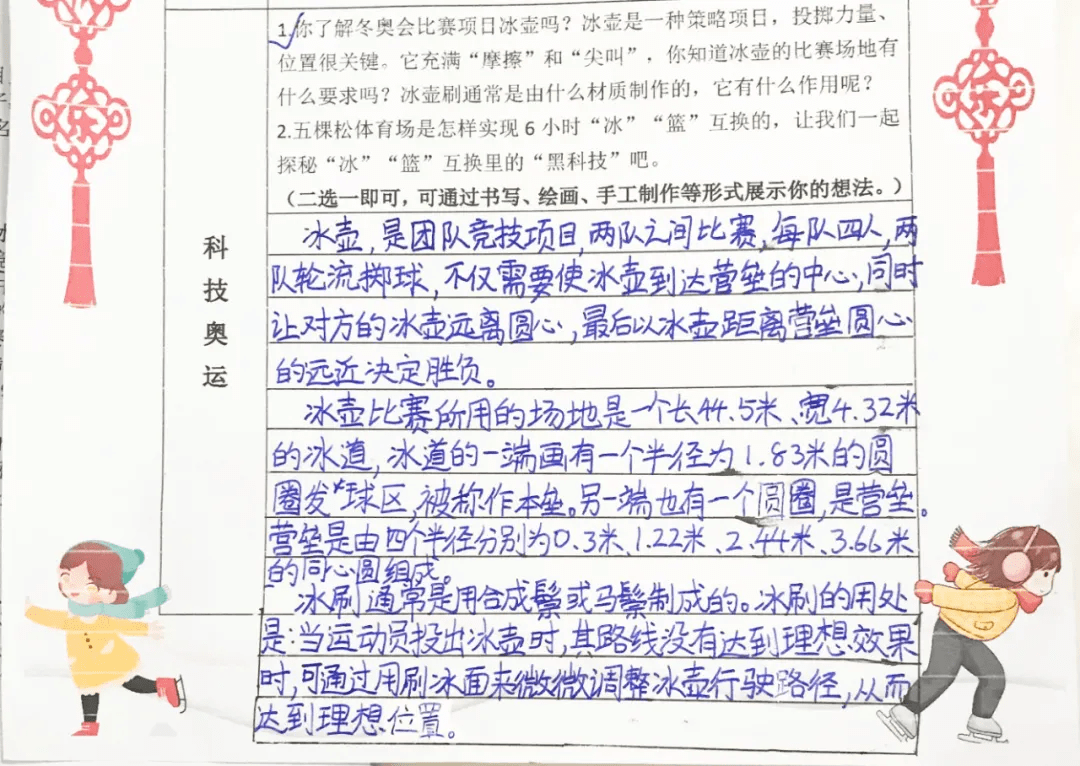 1.你了解冬奥会比赛项目冰壶吗？冰壶是一种策略项目，投掷力量、
位置很关键。它充满“摩擦”和“尖叫”，你知道冰壶的比赛场地有
什么要求吗？冰壶刷通常是由什么材质制作的，它有什么作用呢？
2.五棵松体育场是怎样实现6小时“冰”“篮”互换的，让我们一起
探秘“冰”“篮”互换里的“黑科技”吧。
（二选一即可，可通过书写、绘画、手工制作等形式展示你的想法。）
科技奥运
冰壶，是团队竞技项目，两队之间比赛，每队四人，两
队轮流掷球，不仅需要使冰壶到达营垒的中心，同时
让对方的冰壶远离圆心，最后以冰壶距离营垒圆心
的远近决定胜负。
冰壶比赛所用的场地是一个长44.5米、宽4.32米
的冰道，冰道的一端画有一个半径为1.83米的圆
圈发球区，被称作本垒。另一端也有一个圆圈，是营垒。
营垒是由四个半径分别为0.3米、1.22米、2.44米、3.66米
的同心圆组成。
冰刷通常是用合成鬃或马鬃制成的。冰刷的用处
是：当运动员投出冰壶时，其路线没有达到理想效果
时，可通过用刷冰面来微微调整冰壶行驶路径，从而
达到理想位置。